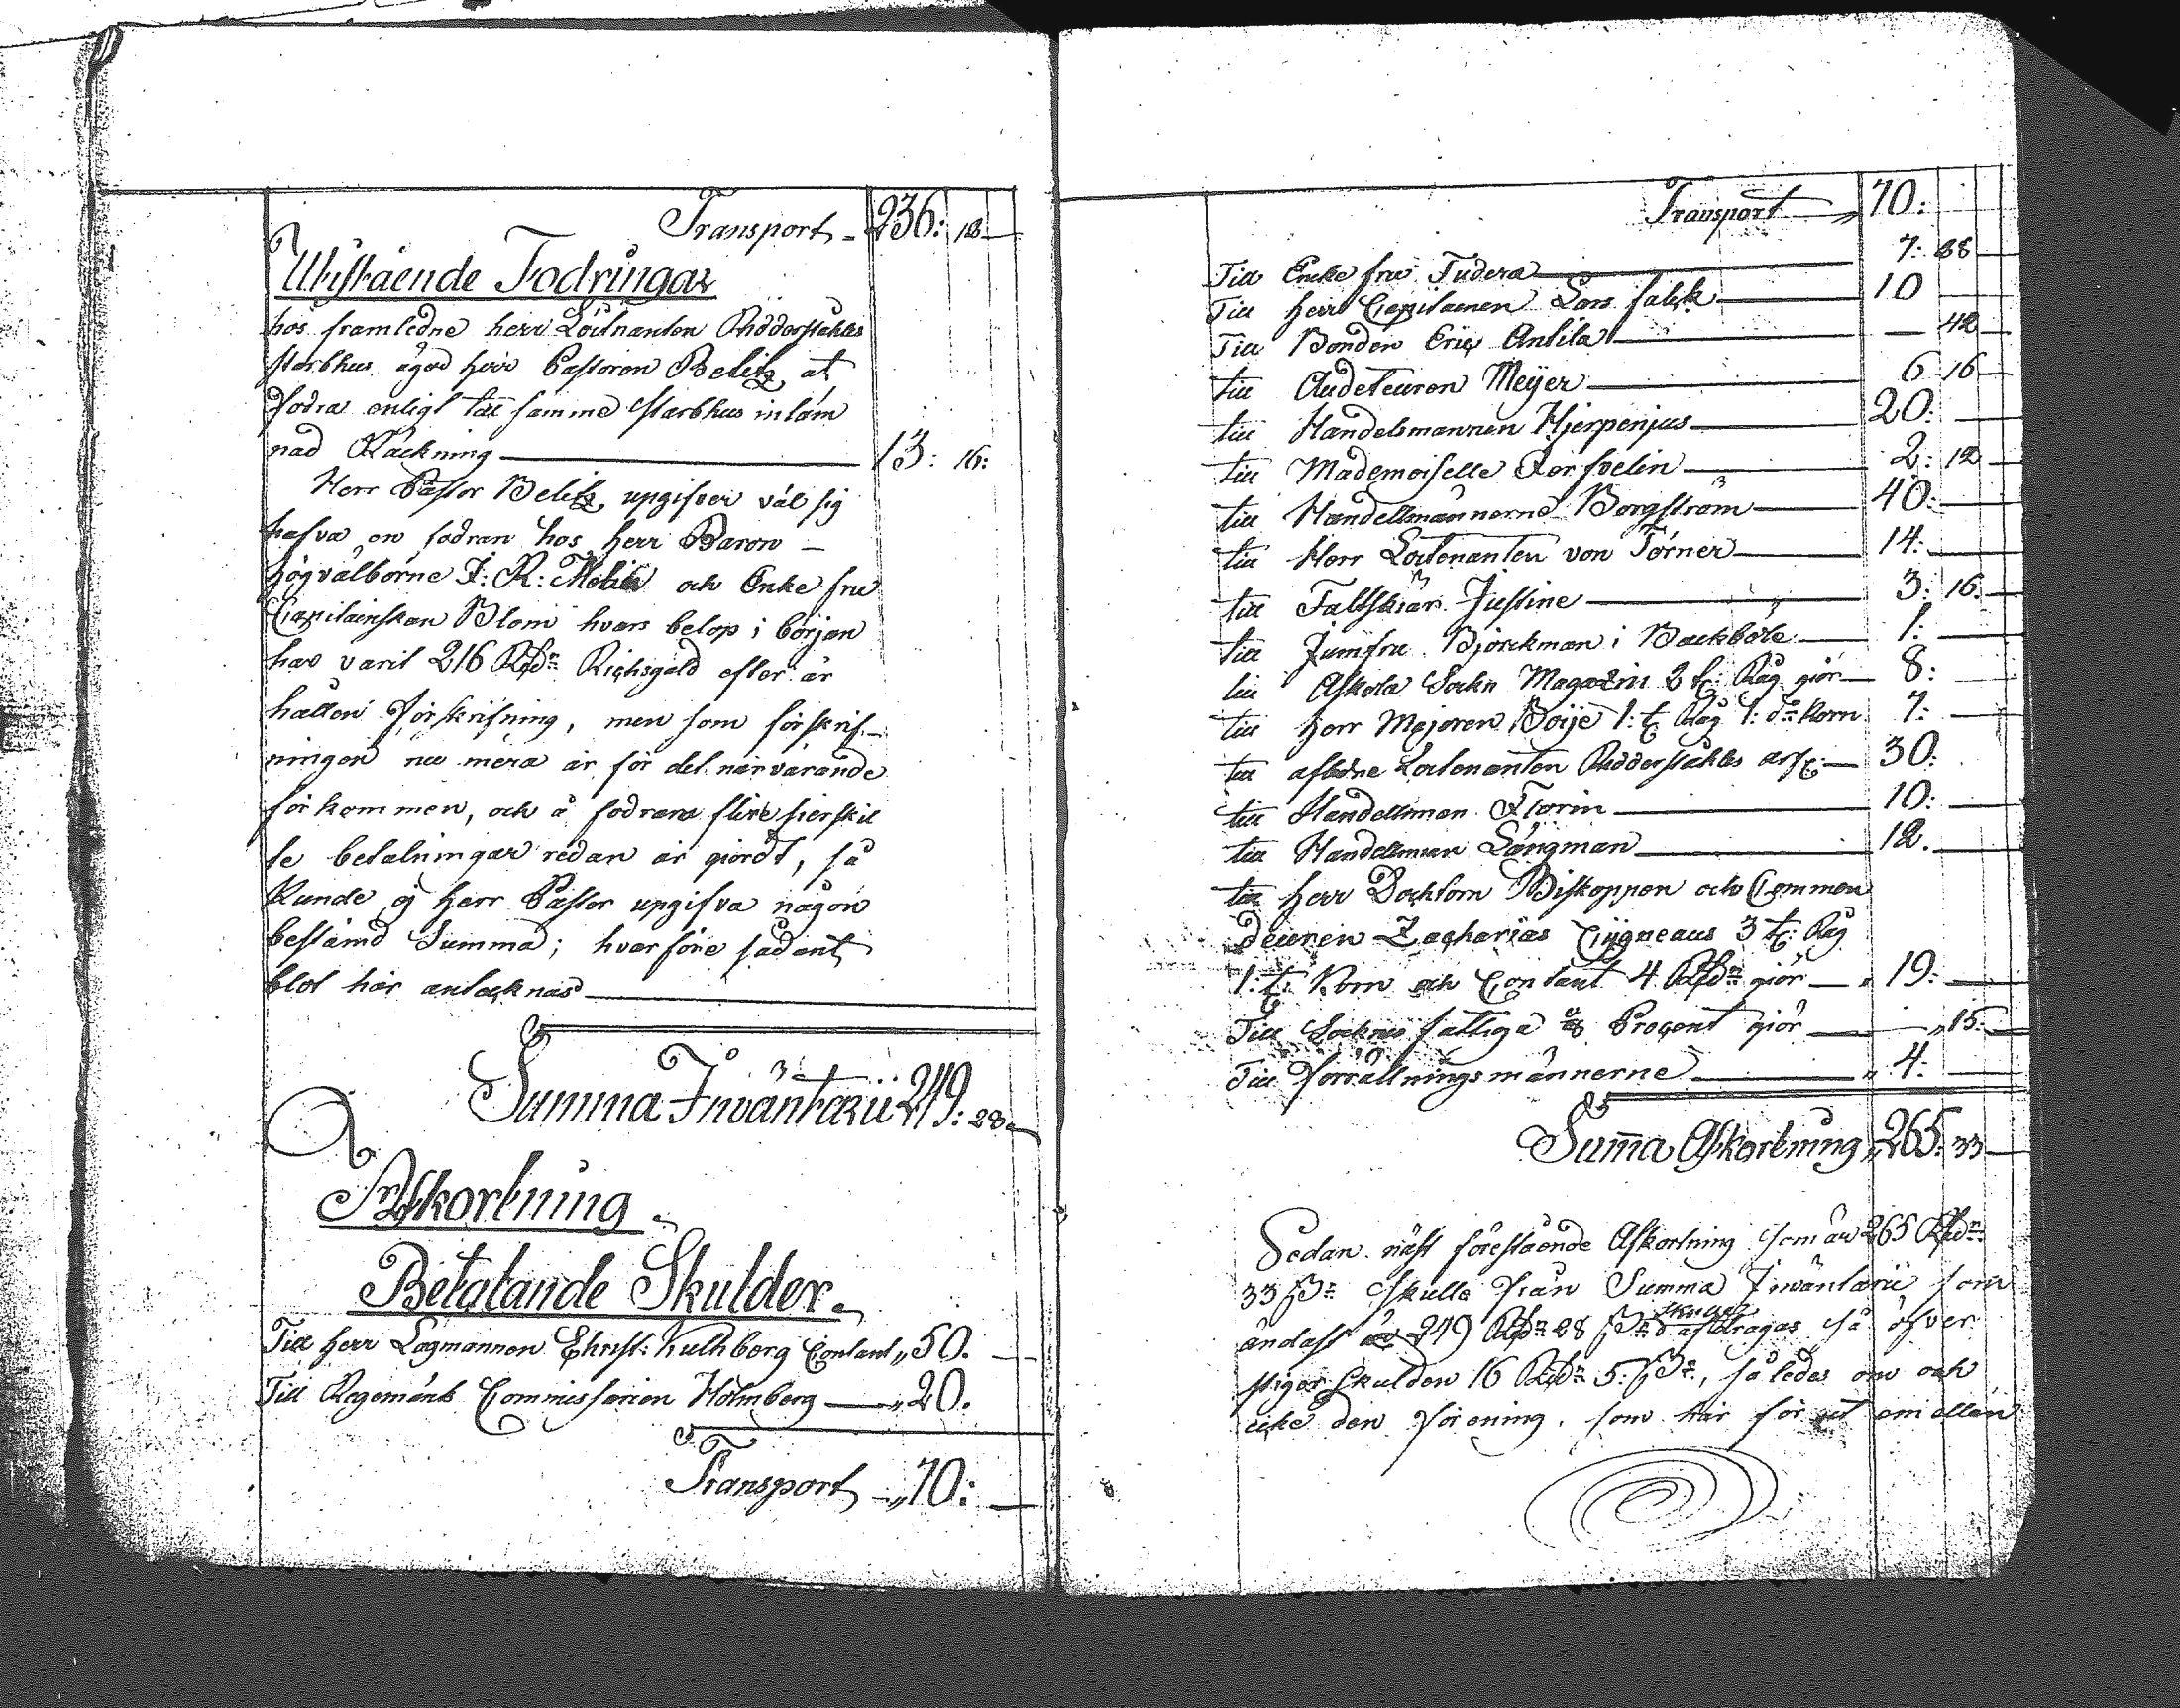 Transport - 236: 12 —
Utestående Fodringar
hos framledne herr Löitnanten Ridderståhles
starbhus äger herr Pastoren Belitz at
fodra enligt till samme Starbhus inläm
nad Räckning — 13: 16:
Herr Pastor Belitz upgifver väl sig
hafva en fodran hos herr Baron —
högvälborne J: R: och Enke fru
Capitainskan Blom hvars belop i början
har varit 216 Rdr Richsgäld efter är
hållen Förskrifning, men som förskrif-
ningen nu mera är för det närvarande
förkommen, och å fodrana flere sierskil
te betalningar redan är giordt, så
Kunde ej herr Pastor upgifva någon
bestämd Summa; hvarföre sådant
blot här antecknas —
Summa Inventarii 249: 28 —
Afkortning
Betalande Skulder.
Till herr Lagmannen Christ: Kuthberg Contant „ 50. —
Till Regements Commissarien Holmberg — „ 20.
Transport — „ 70: —
Transport — „ 70:
Till Encke fru Tudera — 7: 28 —
Till herr Capitainen Lars falck — 10 —
Till Bonden Eric Antila — — 42 —
till Auditeuren Meijer — 6 16 —
till Handelsmannen Hjerpenjus — 20: —
till Mademoiselle Forsvelin — 2: 12 —
till Handelsmännerne Borgström — 40: —
till Herr Löitenanten von Törner — 14: —
till Fältskiär Justine — 3: 16: —
till Jumfru Björckman i Backböle — 1: —
till Askola Sokn Magazin 2 t: Råg giör — 8: —
till herr Majoren Boije 1: t: Råg 1: do Korn 7: —
till afledne Löitenanten Ridderståhles arf: — 30:
till Handelsman Florin — 10: —
till Handelsman Långman — 12. —
till herr Docktorn Biskoppen och Commen
deuren Zacharias Cygneaus 3 t: Råg
1: t: Korn och Contant 4 Rdr giör — „ 19: —
Till Soknes fattiga 1/8 Procent giör — — „ 15: —
Till Förrättningsmännerne — „ 4: —
Summa Afkortning „ 265: 33 —
Sedan näst föreståënde Afkortning som är 265 Rdr
33 s: skulle från Summa Inventarii som
skulle
ändast är 249 Rdr 28 s: afdragas så öfver
stiger skulden 16 Rdr 5: s:, således om och
icke den Förening, som här för ut emellan